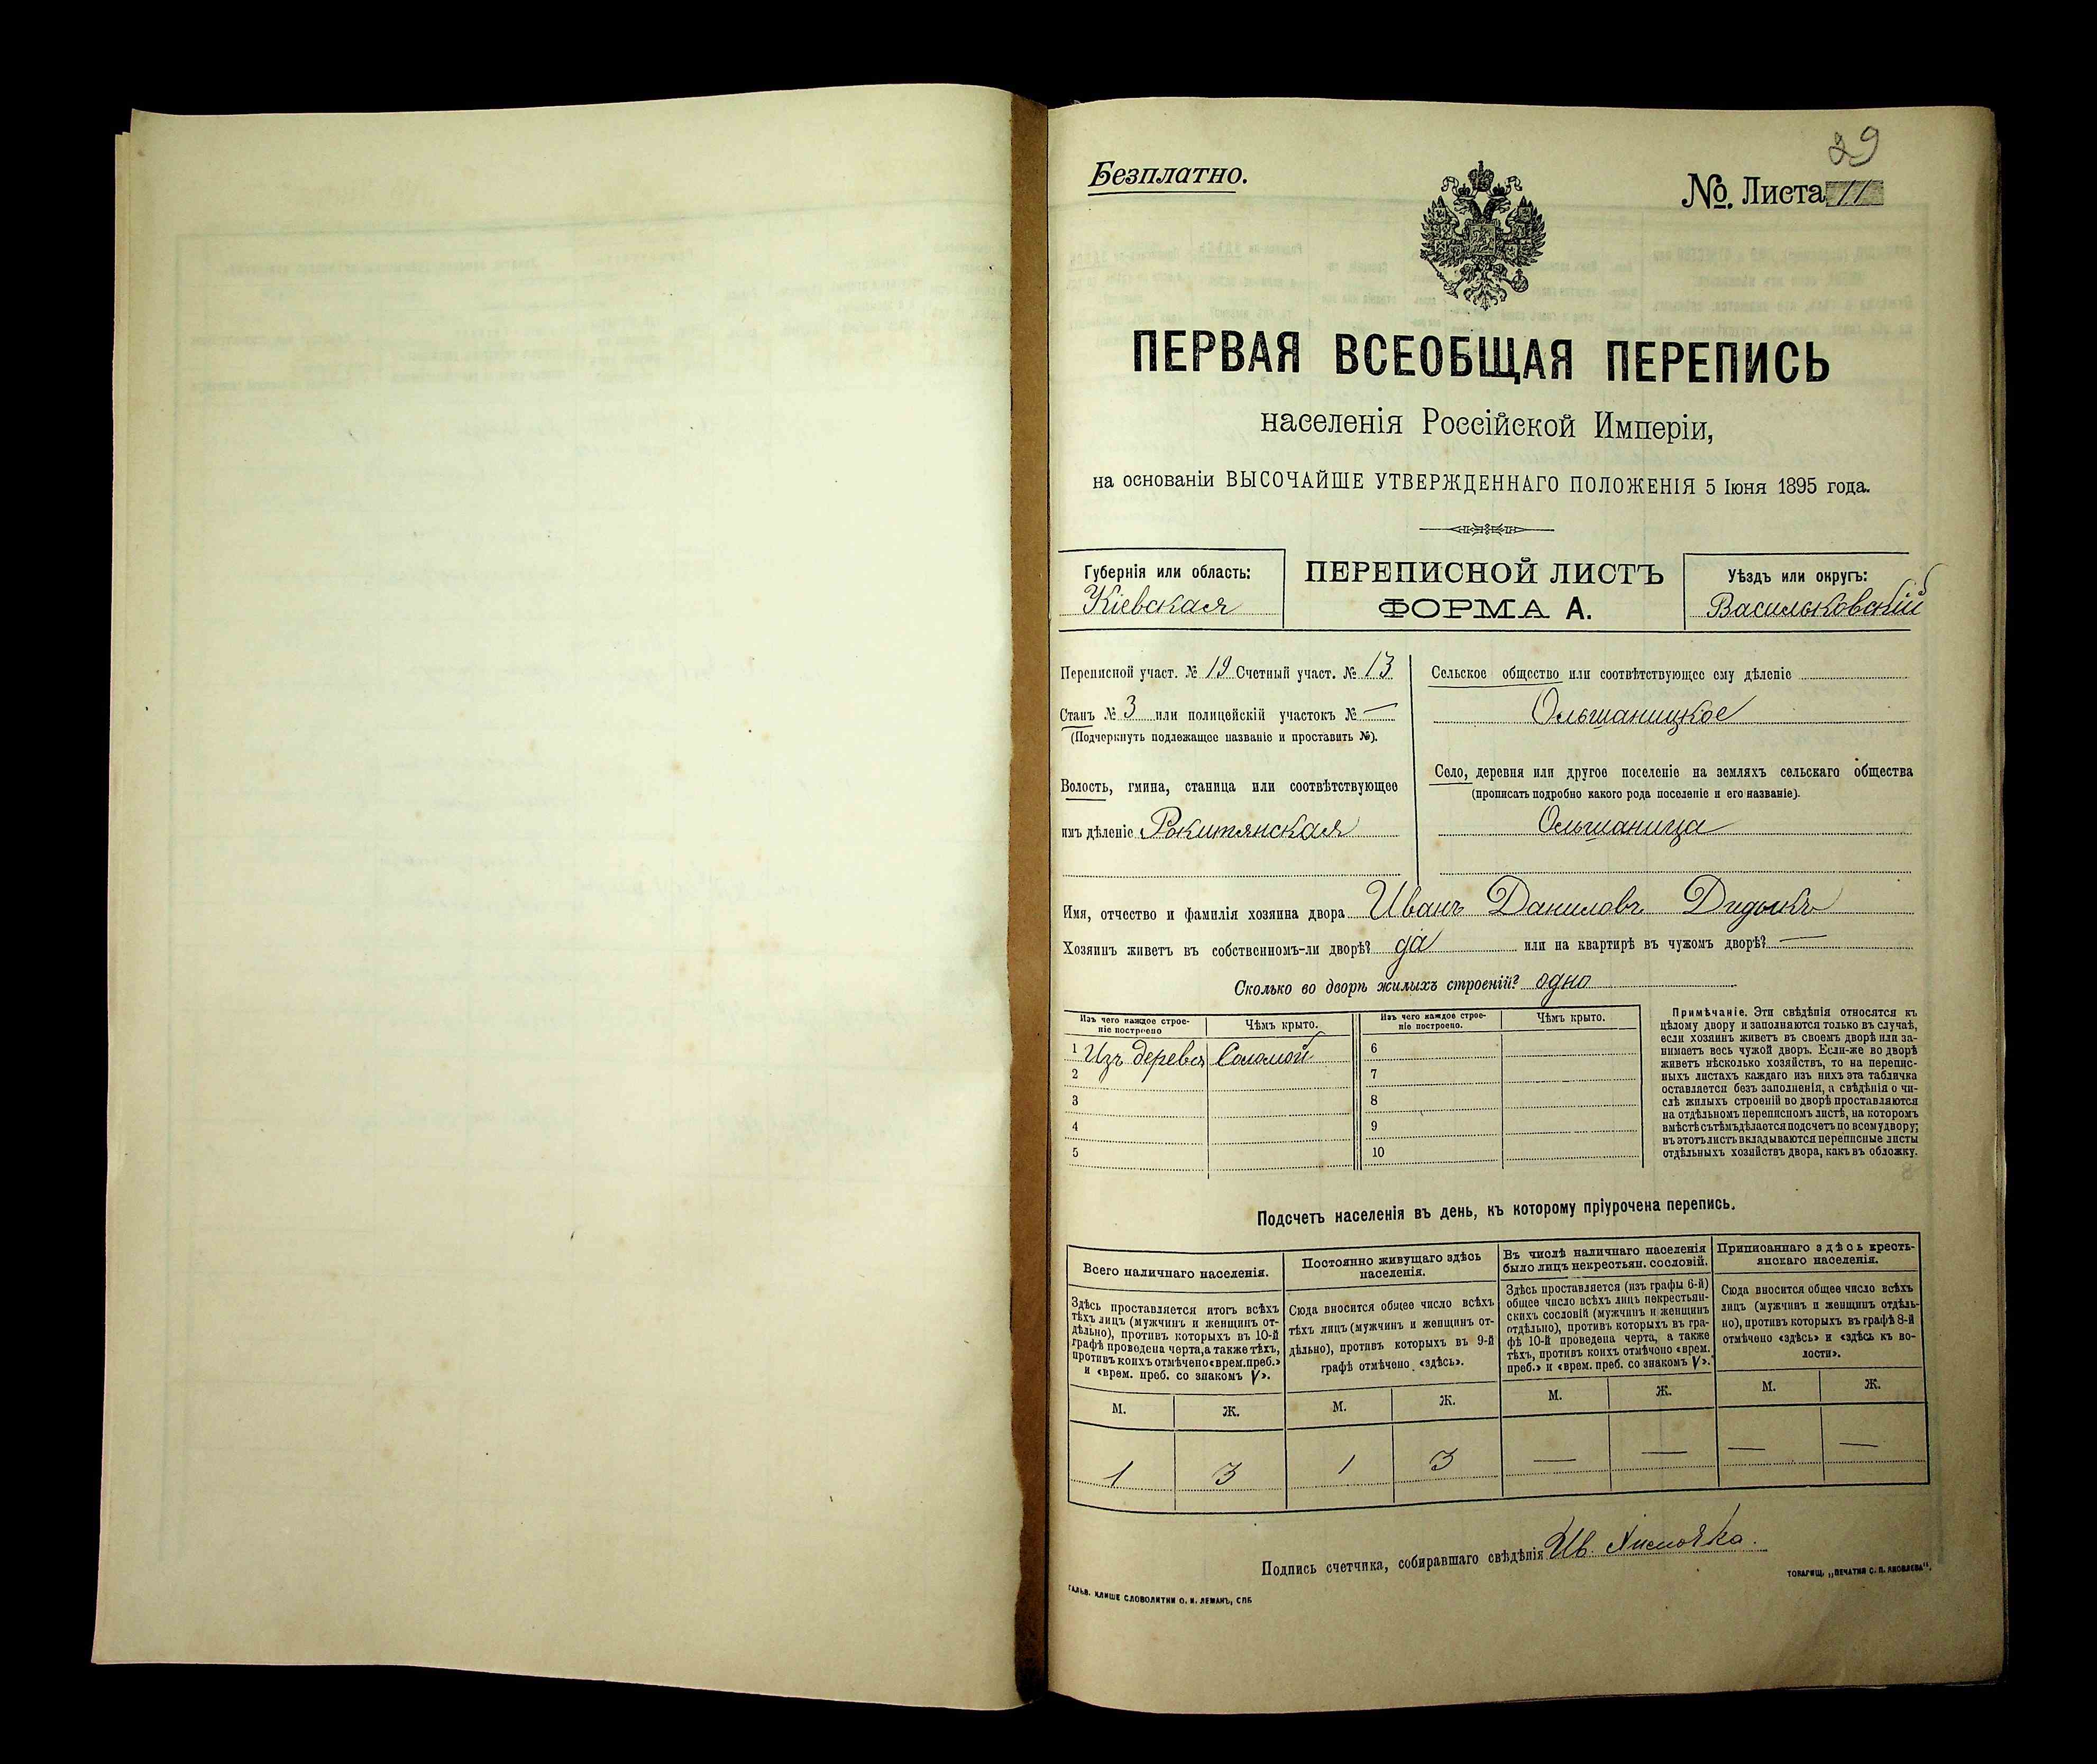 29
Безплатно.
№. Листа 11
ПЕРВАЯ ВСЕОБЩАЯ ПЕРЕПИСЬ
населенія Россійской Имперіи,
на основаніи ВЫСОЧАЙШЕ УТВЕРЖДЕННАГО ПОЛОЖЕНІЯ 5 Іюня 1895 года.
Губернія или область:
Кіевская
ПЕРЕПИСНОЙ ЛИСТЪ
ФОРМА А.
Уѣздъ или округъ:
Васильковскій
Переписной участ. № 19 Счетный участ. № 13
Станъ № 3 или полицейскій участокъ № —
(Подчеркнуть подлежащее названіе и проставить №).
Волость, гмина, станица или соотвѣтствующее
имъ дѣленіе Рокитянская
Сельское общество или соотвѣтствующее ему дѣленіе
Ольшаницкое
Село, деревня или другое поселеніе на земляхъ сельскаго общества
(прописать подробно какого рода поселеніе и его названіе).
Ольшаница
Имя, отчество и фамилія хозяина двора Иванъ Даниловъ Дидыкъ
Хозяинъ живетъ въ собственномъ-ли дворѣ? да или на квартирѣ въ чужомъ дворѣ? —
Сколько во дворѣ жилыхъ строеній? одно
Изъ чего каждое строе-
ніе построено
Чѣмъ крыто.
Изъ чего каждое строе-
ніе построено.
Чѣмъ крыто.
1 Изъ дерева Соломой
2
3
4
5
6
7
8
9
10
Примѣчаніе. Эти свѣдѣнія относятся къ
цѣлому двору и заполняются только въ случаѣ,
если хозяинъ живетъ въ своемъ дворѣ или за-
нимаетъ весь чужой дворъ. Если-же во дворѣ
живетъ нѣсколько хозяйствъ, то на перепис-
ныхъ листахъ каждаго изъ нихъ эта табличка
оставляется безъ заполненія, а свѣдѣнія о чи-
слѣ жилыхъ строеній во дворѣ проставляются
на отдѣльномъ переписномъ листѣ, на которомъ
вмѣстѣ съ тѣмъ дѣлается подсчетъ по всему двору;
въ этотъ листъ вкладываются переписные листы
отдѣльныхъ хозяйствъ двора, какъ въ обложку.
Подсчетъ населенія въ день, къ которому пріурочена перепись.
Всего наличнаго населенія.
Здѣсь проставляется итогъ всѣхъ
тѣхъ лицъ (мужчинъ и женщинъ от-
дѣльно), противъ которыхъ въ 10-й
графѣ проведена черта, а также тѣхъ,
противъ коихъ отмѣчено «врем. преб.»
и «врем. преб. со знакомъ V».
Постоянно живущаго здѣсь
населенія.
Сюда вносится общее число всѣхъ
тѣхъ лицъ (мужчинъ и женщинъ от-
дѣльно), противъ которыхъ въ 9-й
графѣ отмѣчено «здѣсь».
Въ числѣ наличнаго населенія
было лицъ некрестьян. сословій.
Здѣсь проставляется (изъ графы 6-й)
общее число всѣхъ лицъ некрестьян-
скихъ сословій (мужчинъ и женщинъ
отдѣльно), противъ которыхъ въ гра-
фѣ 10-й проведена черта, а также
тѣхъ, противъ коихъ отмѣчено «врем.
преб.» и «врем. преб. со знакомъ V».
Приписаннаго здѣсь кресть-
янскаго населенія.
Сюда вносится общее число всѣхъ
лицъ (мужчинъ и женщинъ отдѣль-
но), противъ которыхъ въ графѣ 8-й
отмѣчено «здѣсь» и «здѣсь къ во-
лости».
М. Ж. М. Ж. М. Ж. М. Ж.
1 3 1 3 — — — —
Подпись счетчика, собиравшаго свѣдѣнія Ив.
ГАЛЬВ. КЛИШЕ СЛОВОЛИТНИ О. И. ЛЕМАНЪ, СПБ
ТОВАРИЩ. „ПЕЧАТНЯ С. П. ЯКОВЛЕВА“.